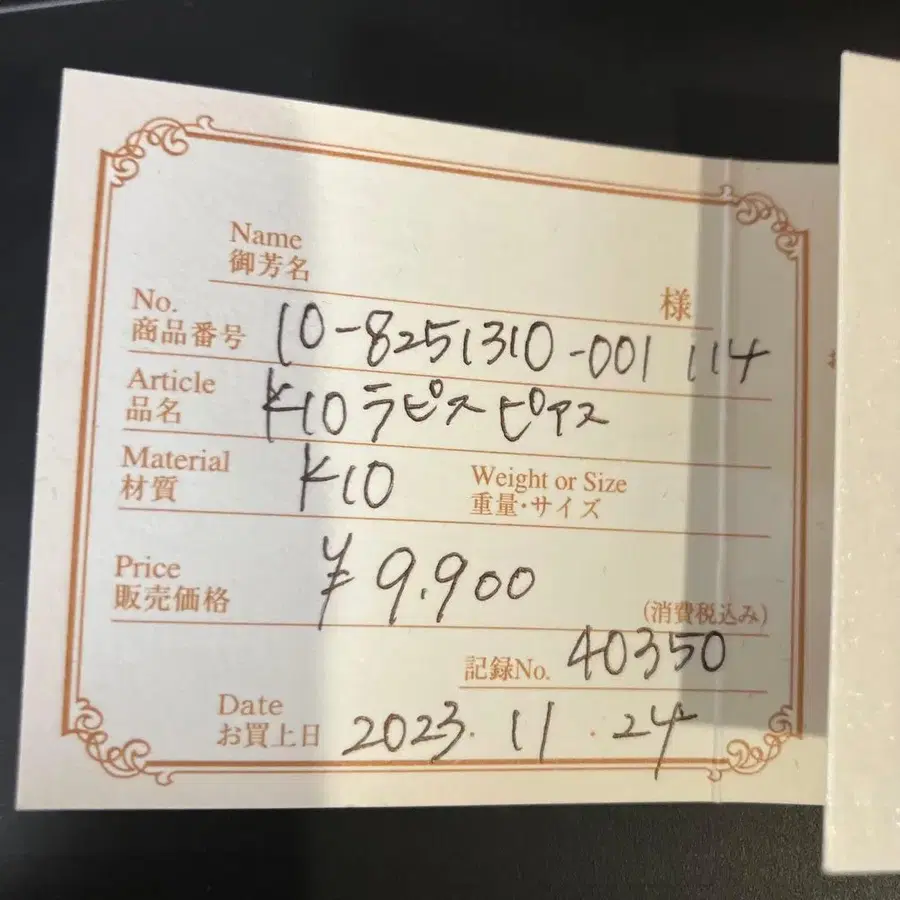 Name
御芳名 様
No.
商品番号 10-8251310-001 114
Article
品名 K10ラピスピアス
Material
材質 K10
Weight or Size
重量・サイズ
Price
販売価格 ¥9.900
(消費税込み)
記録No. 40350
Date
お買上日 2023. 11 . 24